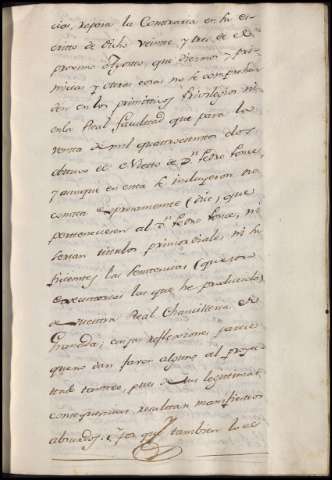 cios, repone la Contraria en su es-
critto de dicho veinte, y tres de el
proximo Agosto, que diezmos y pri-
micias y otras cosas no se comprehen-
den en los primitivos Privilegios ni
en la Real facultad que para la
Venta de mil quattrocientos dos
obtuvo el Nietto de Dn. Pedro Ponce,
y aunque en esta se incluyeron no
consta expresamente (dice) que
pertenecieron al Dn. Pedro Ponce, ni
serian titulos primordiales ni su-
ficientes las sentencias, (que son
Executorias las que he producido)
de vuestra Real Chancilleria de
Granada; cuias reflexiones parece
que no dan favor alguno al proyec-
tado tanteo, pues de sus legitimas
consequencias resultan manifiestos
absurdos: y porque tambien la el